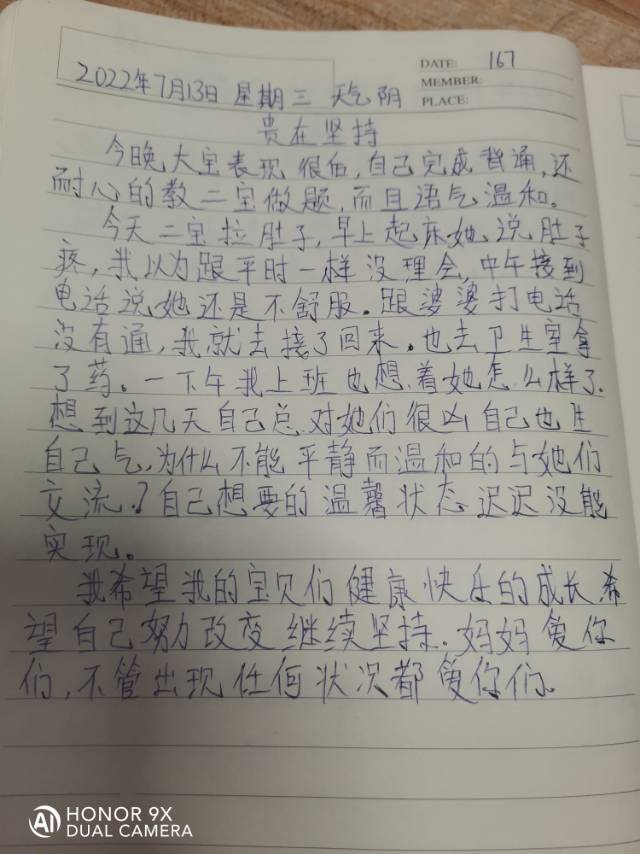 DATE: 167
MEMBER:
PLACE:
2022年7月13日 星期三 天气阴
贵在坚持
今晚大宝表现很好,自己完成背诵,还
耐心的教二宝做题,而且语气温和。
今天二宝拉肚子,早上起床她说肚子
疼,我以为跟平时一样没理会,中午接到
电话说她还是不舒服。跟婆婆打电话
没有通,我就去接了回来。也去卫生室拿
了药。一下午我上班也想着她怎么样了.
想到这几天自己总对她们很凶自己也生
自己气,为什么不能平静而温和的与她们
交流?自己想要的温馨状态迟迟没能
实现。
我希望我的宝贝们健康快乐的成长希
望自己努力改变继续坚持.妈妈爱你
们,不管出现任何状况都爱你们。
AI HONOR 9X
DUAL CAMERA